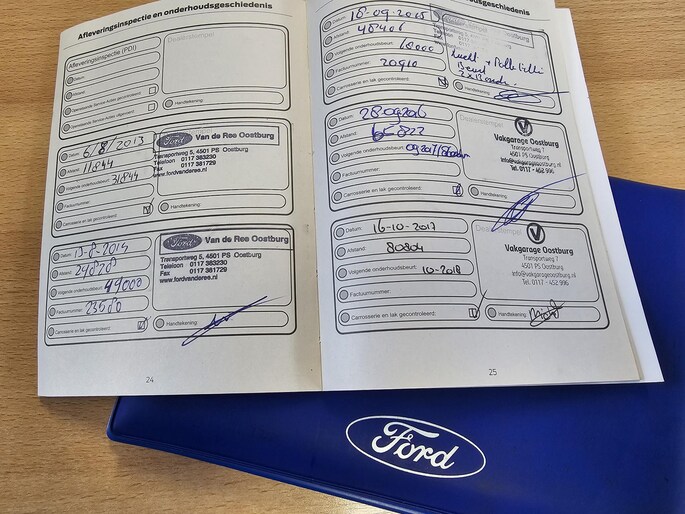 Afleveringsinspectie en onderhoudsgeschiedenis
Afleveringsinspectie (PDI)
Dealerstempel
Datum:
Afstand:
Openstaande Service Acties gecontroleerd:
Openstaande Service Acties uitgevoerd:
Handtekening:
Datum: 6/8/2013
Afstand: 11844
Volgende onderhoudsbeurt: 31844
Factuurnummer:
Carrosserie en lak gecontroleerd:
Ford Van de Ree Oostburg
Transportweg 5, 4501 PS Oostburg
Telefoon 0117 383230
Fax 0117 381729
www.fordvanderee.nl
Handtekening:
Datum: 13-8-2014
Afstand: 24828
Volgende onderhoudsbeurt: 49000
Factuurnummer: 23580
Carrosserie en lak gecontroleerd:
Ford Van de Ree Oostburg
Transportweg 5, 4501 PS Oostburg
Telefoon 0117 383230
Fax 0117 381729
www.fordvanderee.nl
Handtekening:
24
oudsgeschiedenis
Datum: 18-09-2015
Afstand: 48406
Volgende onderhoudsbeurt:
Factuurnummer: 20910
Carrosserie en lak gecontroleerd:
Handtekening:
Datum:
Afstand: 65822
Volgende onderhoudsbeurt:
Factuurnummer:
Carrosserie en lak gecontroleerd:
Vakgarage Oostburg
Transportweg 7
4501 PS Oostburg
Info@vakgarageoostburg.nl
Tel. 0117 - 452 996
Handtekening:
Datum: 16-10-2017
Afstand: 80804
Volgende onderhoudsbeurt: 10-2018
Factuurnummer:
Carrosserie en lak gecontroleerd:
Vakgarage Oostburg
Transportweg 7
4501 PS Oostburg
Info@vakgarageoostburg.nl
Tel. 0117 - 452 996
Handtekening:
25
Ford